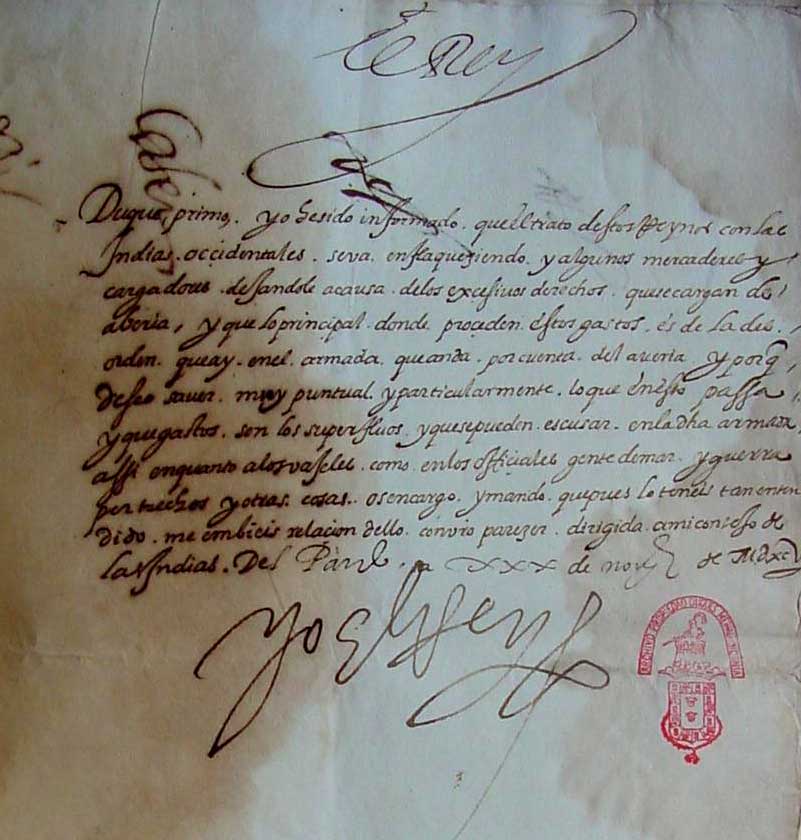 El Rey
Duque primo, yo he sido informado. que el trato destos Reynos con las
Indias. occidentales. se va. enflaqueziendo. y algunos mercaderes y
cargadores. desandole a causa. de los excesivos derechos. que se cargan de
aberia, y que lo principal. donde. proceden. estos gastos. es de la des
orden. que ay. en el. armada. que anda. por cuenta. del averia. y porq̃
deseo saver. muy puntual. y particularmente. lo que en esto passa
y que gastos. son los superfluos. y que se pueden. escusar. en la dha armada
assi en quanto a los vaseles. como. en los officiales gente de mar. y guerra
pertrechos y otras. cosas. os encargo. y mando. que pues lo teneis tan enten
dido. me embieis relacion dello. con vr̃o parezer. dirigida. a mi consejo de
las Indias. Del Pardo. a XXX de nov.e de MDXC
Yo el Rey